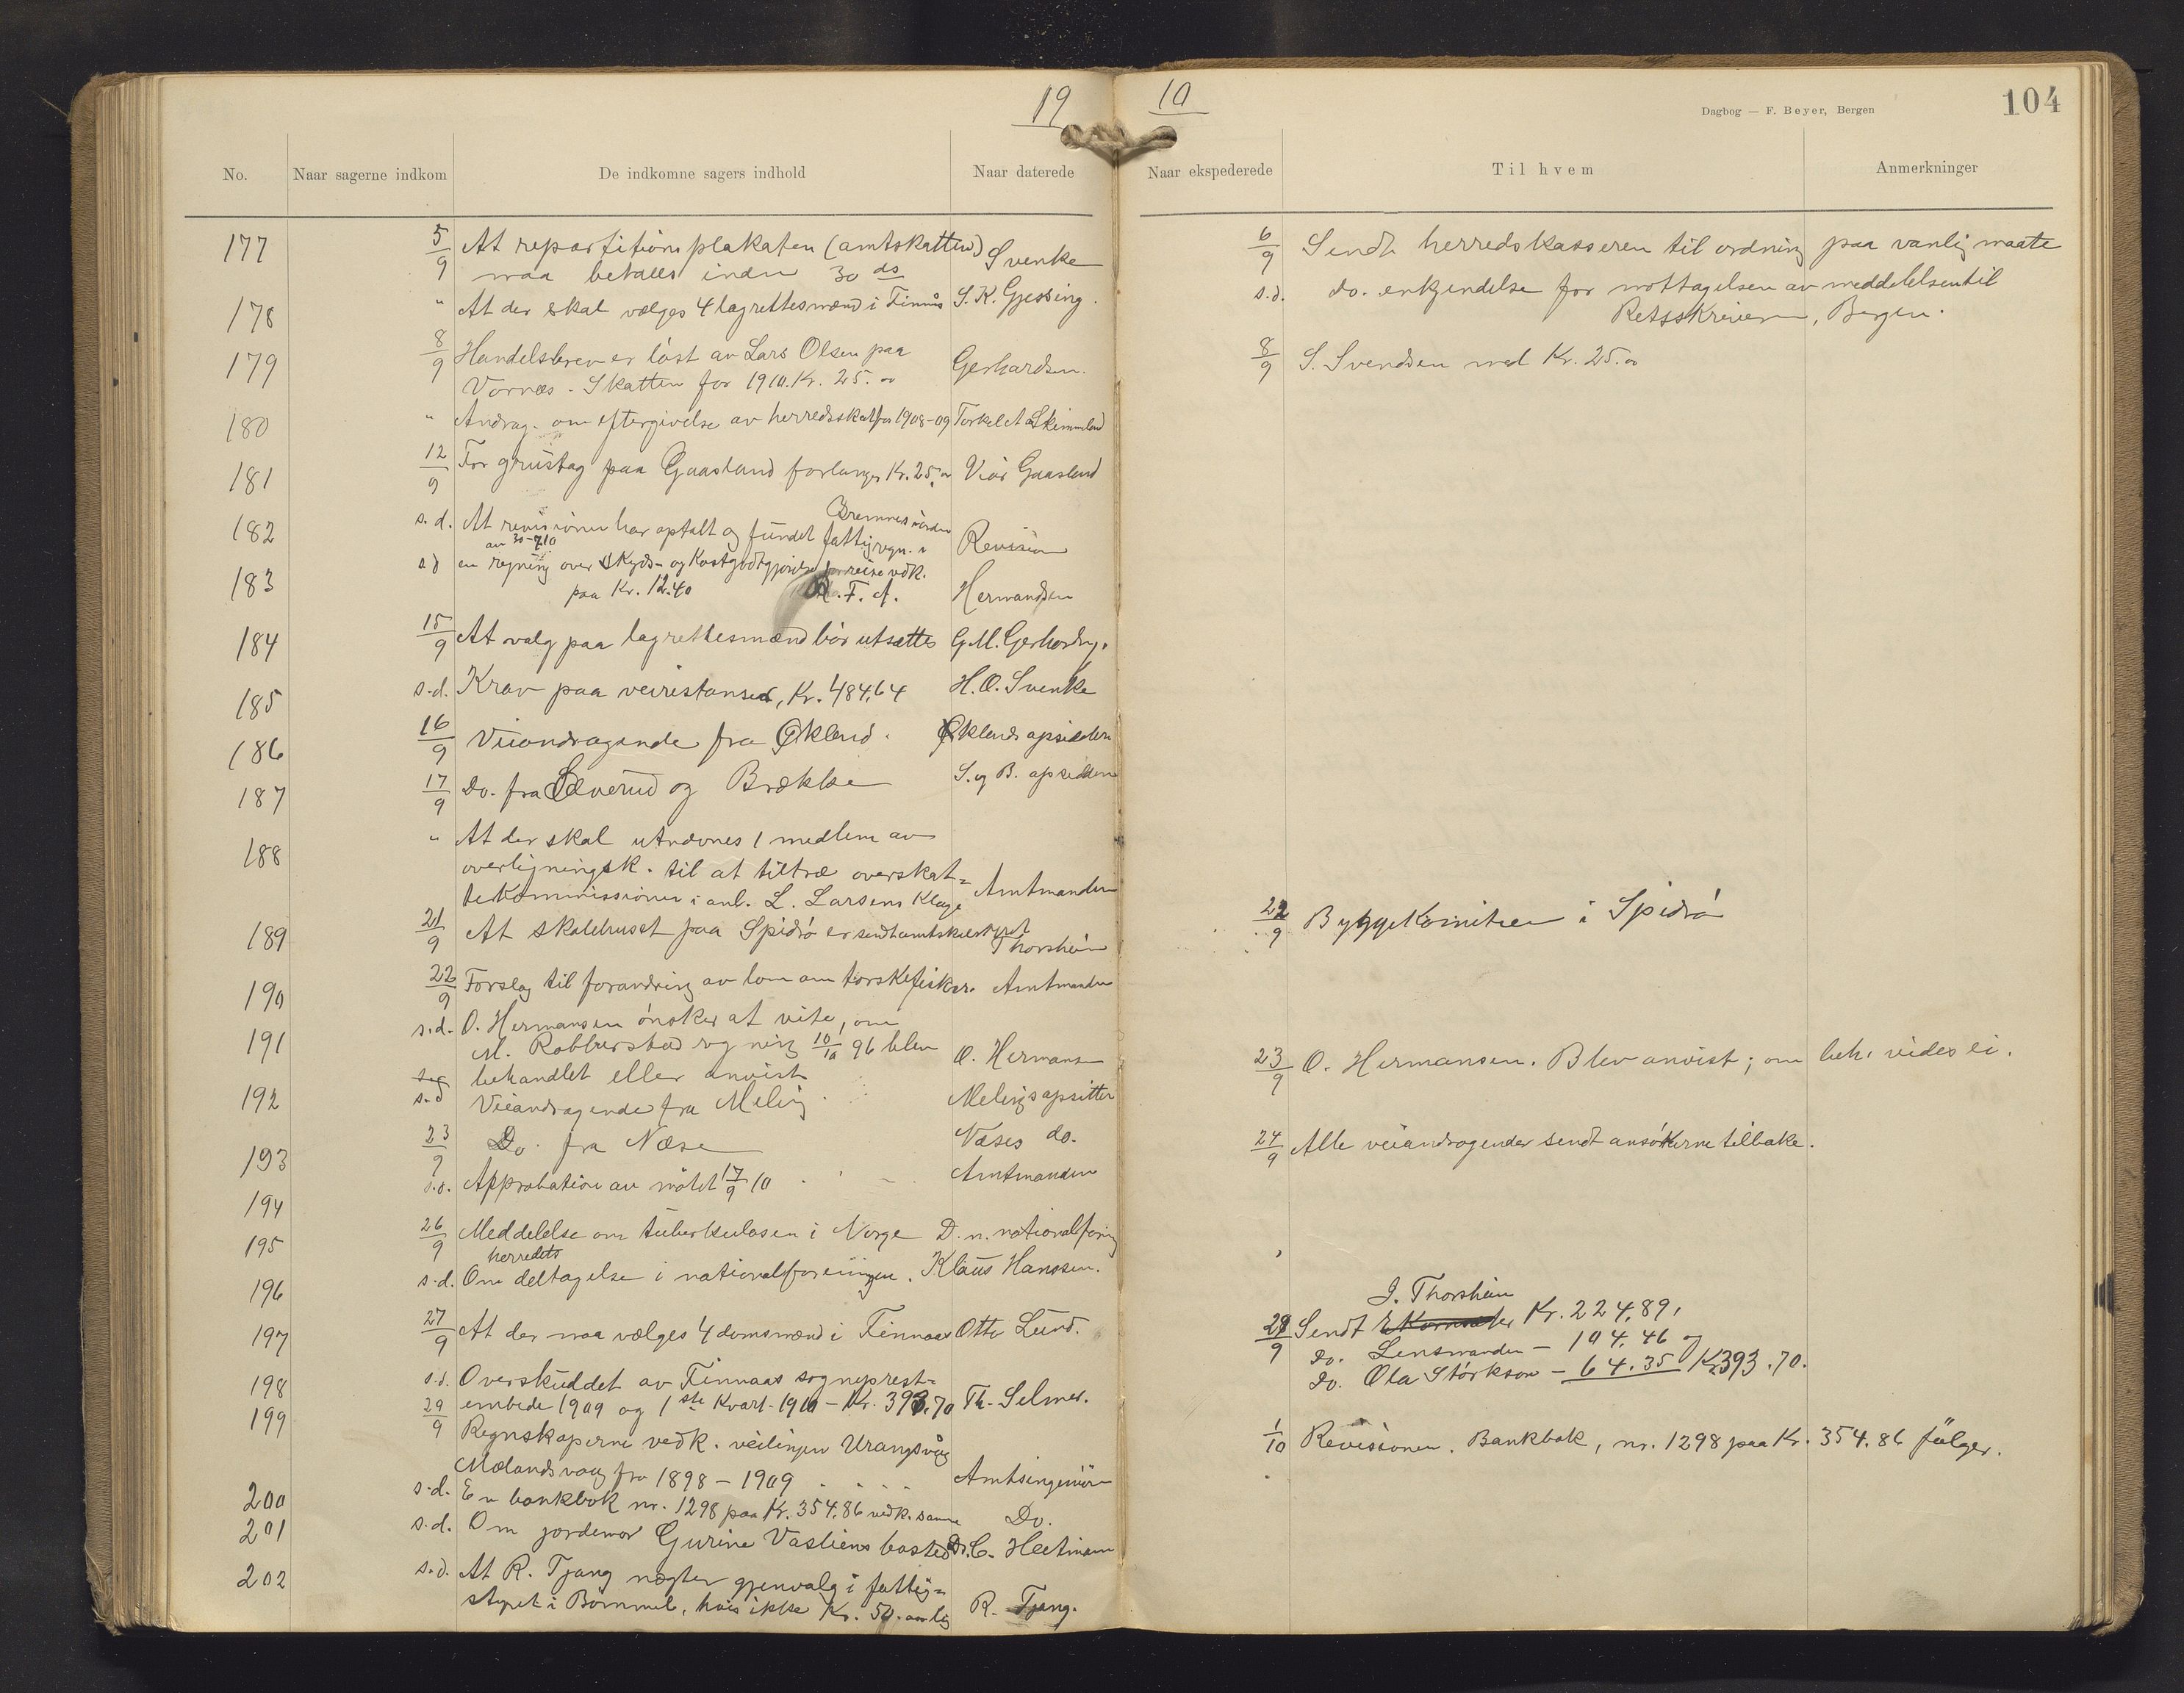 19
10
Dagbog — F. Beyer, Bergen
104
No.
Naar sagerne indkom
De indkomne sagers indhold
Naar daterede
Naar ekspederede
Til hvem
Anmerkninger
177 5/9 At repartitionsplakaten (amtskatten) Svenke
maa betales inden 30 ds
6/9 Sendt herredskasseren til ordning paa vanlig maate
178 " At der skal vælges 4 lagrettesmænd i Finnås S. K. Gjessing.
s.d. do. erkjendelse for mottagelsen av meddelelsen til
Retsskriveren, Bergen.
179 8/9 Handelsbrev er löst av Lars Olsen paa
Vornæs. Skatten for 1910. Kr. 25.00 Gerhardsen.
8/9 S. Svendsen med Kr. 25.00
180 " Andrag. om eftergivelse av herredsskat for 1908-09 Torkel A. Skimmeland
181 12/9 For grustag paa Gaasland forlanges Kr. 25,00 Viör Gaasland
182 s.d. At revisionen har optalt og fundet fattigregn. i Bremnes i orden Revision
av 30-7-10
183 s.d en regning over skyds- og kostgodtgjörelse for reise vdk.
paa Kr. 12.40 F. A. Hermandsen
184 15/9 At valg paa lagrettesmænd bör utsættes G. M. Gerhardsen.
185 s.d. Krav paa veirestanser, Kr. 484,64 H. O. Svenke
186 16/9 Veiandragende fra Økland. Øklands opsiddere
187 17/9 Do. fra Sæverud og Brække S. og B. opsiddere
188 " At der skal utnævnes 1 medlem av
overligningsk. til at tiltræ overskat-
tekommissionen i anl. L. Larsens klage Amtmanden
189 21/9 At skolehuset paa Spidsö er sendt amtsskolestyret Thorsheim
22/9 Byggekomiteen i Spidsö
190 22/9 Forslag til forandring av lov om torskefisker. Amtmanden
191 s.d. O. Hermansen önsker at vite, om
M. Robberstad regning 10/10 96 blev
behandlet eller anvist O. Hermansen
23/9 O. Hermansen. Blev anvist; om beh. vides ei.
192 s.d Veiandragende fra Meling Melings opsitter
193 23/9 Do. fra Næse Næses do.
24/9 Alle veiandragender sendt ansökerne tilbake.
194 s.d. Approbation av mötet 17/9 10 Amtmanden
195 26/9 Meddelelse om tuberkulosen i Norge D. n. nationalforening
196 s.d. Om herredets deltagelse i nationalforeningen. Klaus Hanssen.
197 27/9 At der maa vælges 4 domsmænd i Finnaas Otto Lund.
J. Thorsheim
28/9 Sendt Kr. 224,89,
do. Lensmanden – 104,46
do. Ola Störkson – 64.35 Kr. 393.70.
198 s.d. Overskuddet av Finnaas sogneprest-
embede 1909 og 1ste kvart. 1910 – Kr. 393.70 Th. Selmer.
199 29/9 Regnskaperne vedk. veilinjen Urangsvåg
Mælandsvaag fra 1898 – 1909 Amtsingeniör
1/10 Revisionen. Bankbok, nr. 1298 paa Kr. 354.86 fölger.
200 s.d. En bankbok nr. 1298 paa Kr. 354.86 vedk. samme Do.
201 s.d. Om jordemor Gurine Vasliens bosted Dr. C. Heitmann
202 s.d. At R. Tjang nægter gjenvalg i fattig-
styret i Bömmel, hvis ikke Kr. 50. aarlig R. Tjang.